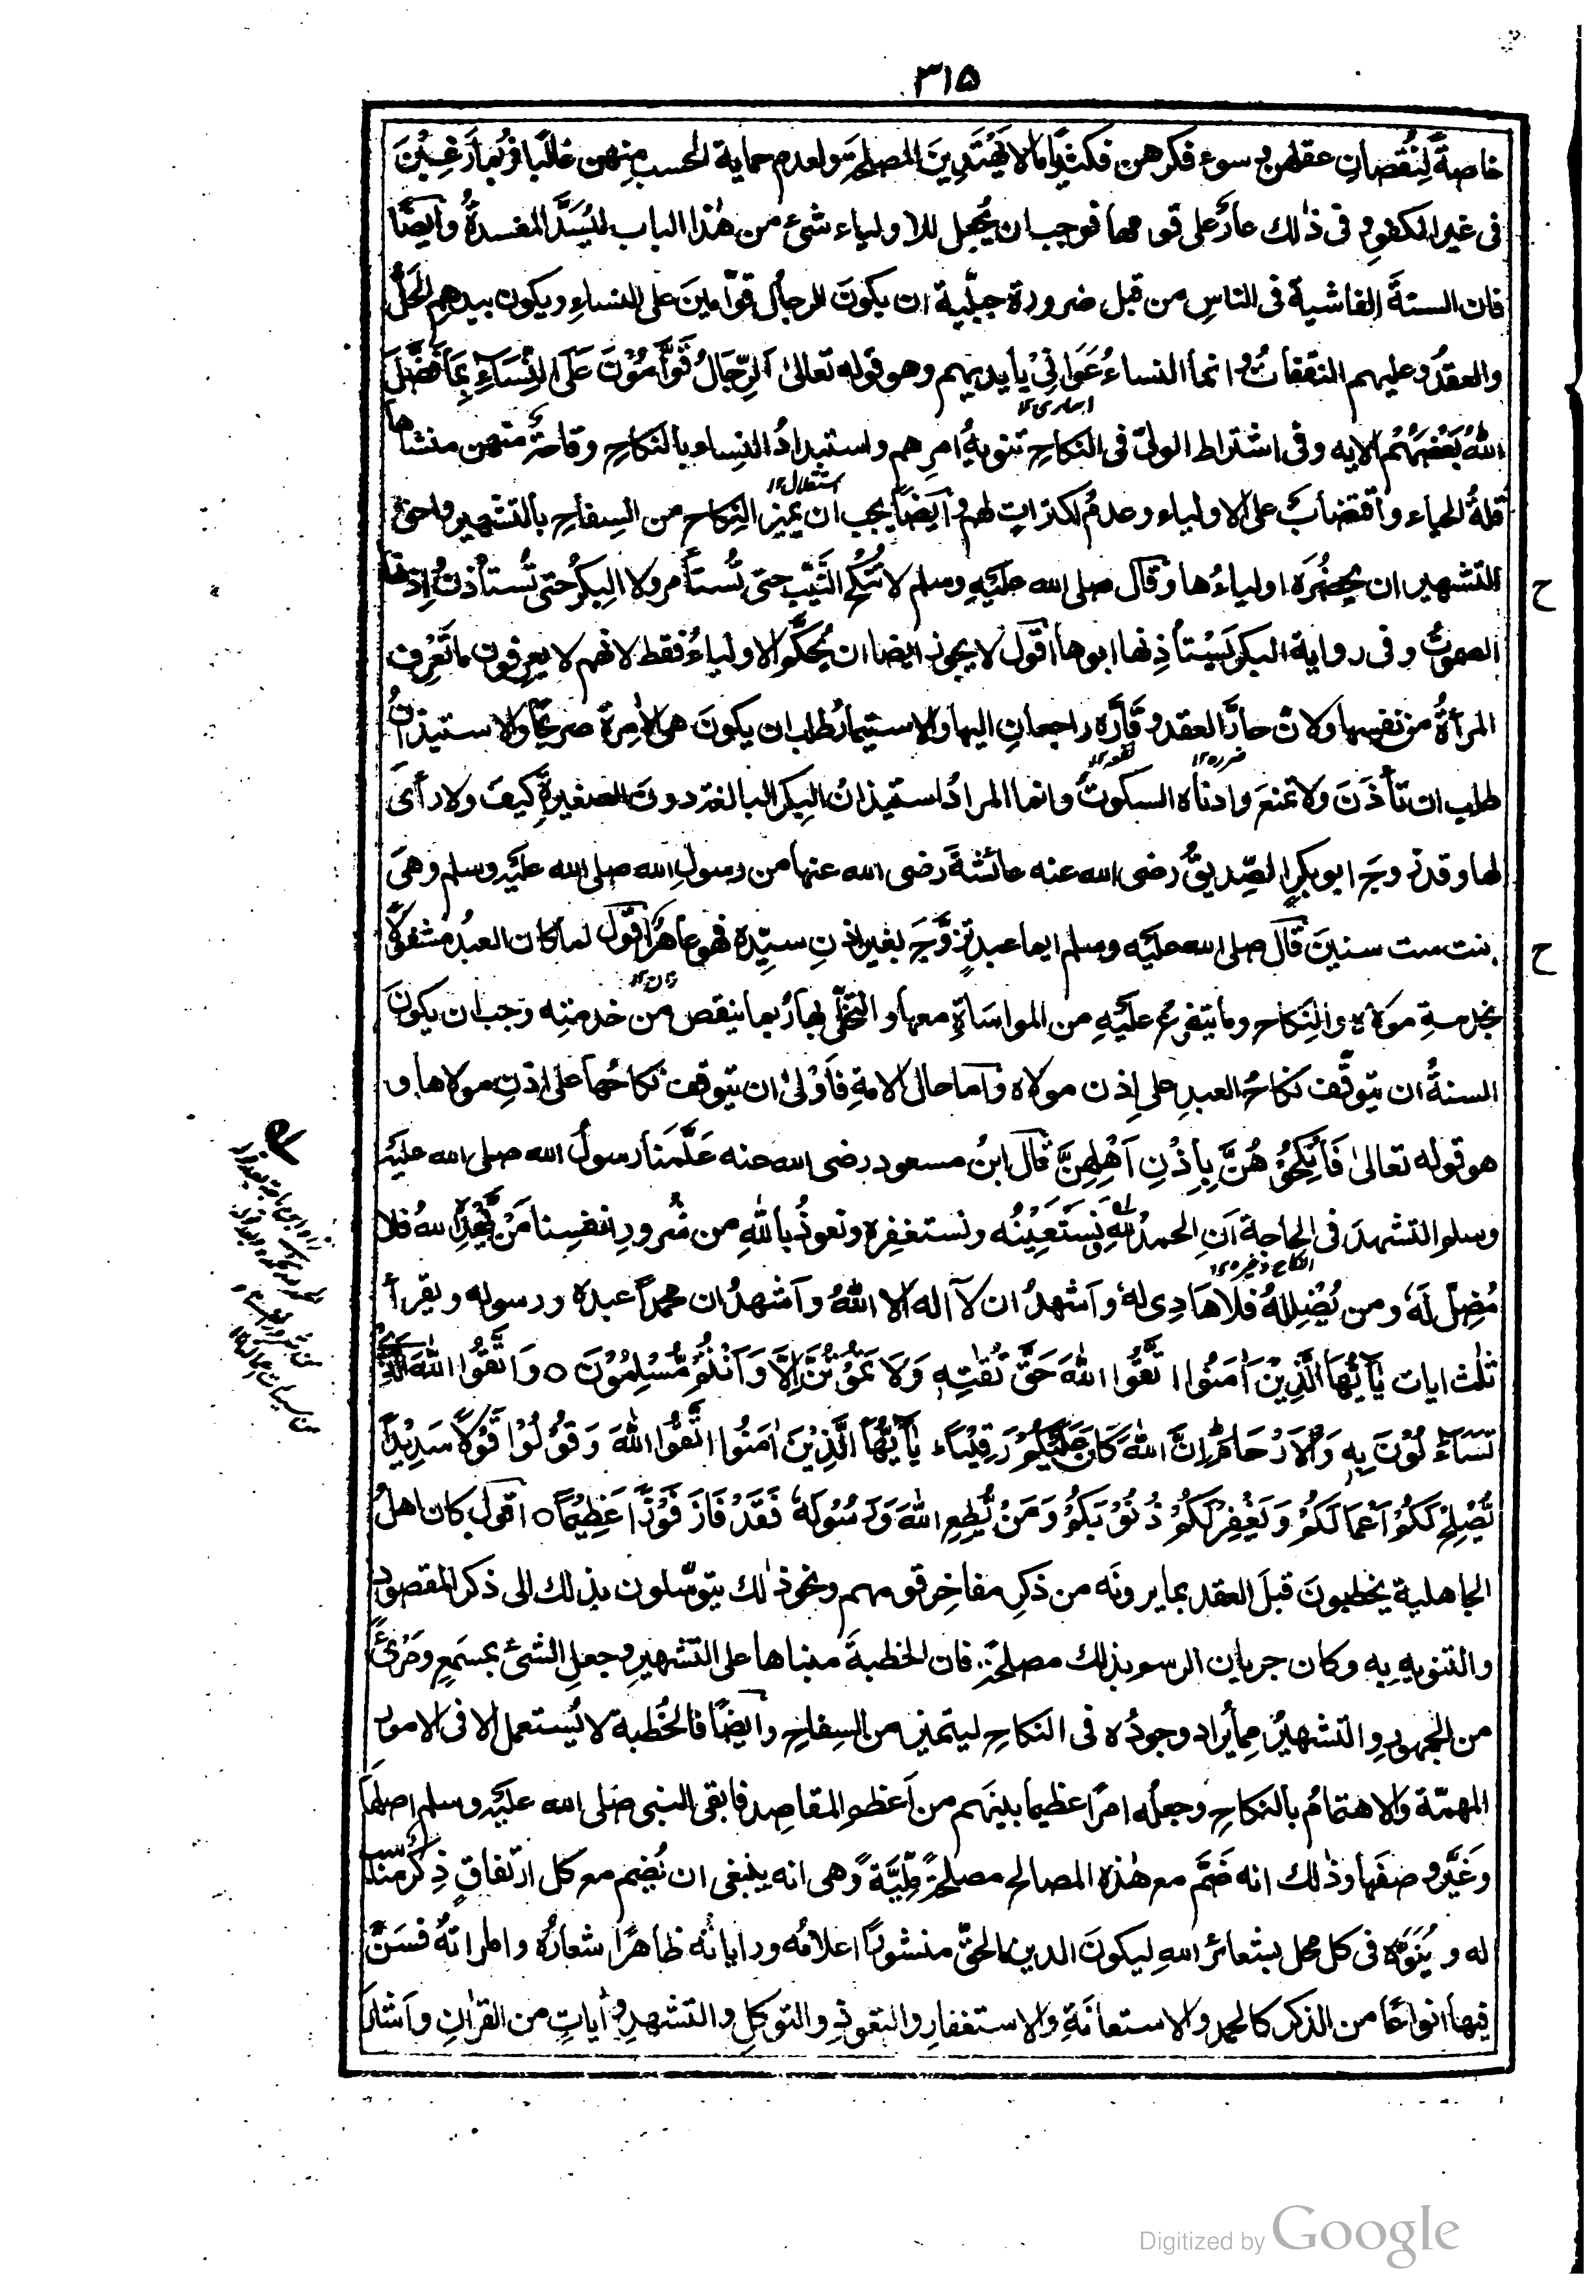 ٣١٥
خاصةً لِنُقصانِ عقلهن وسوء فكرهن فكثيرًا ما لا يَهْتَدِينَ المصلحةَ ولعدم حماية الحسب منهن غالبًا فربما رَغِبْنَ
فى غير الكفو وفى ذٰلك عارٌ على قومها فوجب ان يُجعل للاولياء شئ من هٰذا الباب ليُسَدَّ المفسدةُ وايضًا
فان السنةَ الفاشيةَ فى الناسِ من قبل ضرورة جبلّية ان يكونَ الرجالُ قوّامينَ على النساءِ ويكون بيدهم الحَلُّ
والعقدُ وعليهم النفقاتُ وانما النساءُ عَوَانٍ بأيديهم وهو قوله تعالىٰ اَلرِّجَالُ قَوَّامُوْنَ عَلَى النِّسَاءِ بِمَا فَضَّلَ
اللهُ بَعْضَهُمْ الايه وفى اشتراط الولىّ فى النكاحِ تنويهُ امرِهم واستبدادُ النساء بالنكاحِ وقاحةٌ منهن منشأها
قلةُ الحياء واقتضابٌ على الاولياء وعدمُ اكتراثٍ لهم وايضًا يجب ان يميز النكاح من السِفاحِ بالتشهير واحقُّ
التشهير ان يحضُرَه اولياءُها وقال صلى الله عليه وسلم لا تُنْكَحُ الثَّيّب حتى تُستأمر ولا البِكرُ حتى تُستأذنُ واِذنها
الصموتُ وفى رواية البكر يَسْتأذِنها ابوها اقول لا يجوز ايضا ان يُحَكَّمَ الاولياءُ فقط لانهم لا يعرفون ما تَعْرِف
المرأةُ من نفسها ولان حارَّ العقد وقارَّه راجعانِ اليها والاستيمارُ طلب ان يكونَ هى الاٰمِرةَ صريحًا والاستيذانُ
طلب ان تأذَنَ ولا تمنعَ وادناه السكوتُ وانما المرادُ استيذان البكر البالغة دونَ الصغيرةِ كيف ولا رأى
لها وقد زوج ابو بكرٍ الصِّديقُ رضى الله عنه عائشةَ رضى الله عنها من رسولِ الله صلى الله عليه وسلم وهى
بنت ست سنينَ قال صلى الله عليه وسلم ايما عبدٍ تزوَّجَ بغير اذنِ سيّدِه فهو عاهرٌ اقول لما كان العبدُ مشغولًا
بخدمةِ مولاه والنِكاح وما يتفرع عليه من المواسَاةِ معها والتخلّى بها ربما ينقص من خدمتِه وجب ان يكون
السنةُ ان يتوقَّف نكاحُ العبدِ على اِذن مولاه واما حال الامةِ فاَوْلىٰ ان يتوقف نكاحُها على اذنِ مولاها و
هو قوله تعالىٰ فَانْكِحُوْهُنَّ بِاِذْنِ اَهْلِهِنَّ قال ابنُ مسعود رضى الله عنه عَلَّمَنا رسولُ الله صلى الله عليه
وسلم التشهدَ فى الحاجة اَنِ الحمدُ لِلهِ نستَعِيْنُه ونستغفِره ونعوذُ باللهِ من شُرورِ انفسِنا مَنْ يَهْدِ اللهُ فلا
مُضِلَّ لَهٗ ومن يُضْلِلهُ فلا هَادِى لهٗ واَشهدُ ان لآ اله الا اللهُ واَشهدُ ان محمداً عبده ورسوله ويقرأ
ثلٰث ايات يٰاَيُّهَا الَّذِيْنَ اٰمَنُوا اتَّقُوا اللهَ حَقَّ تُقٰتِهٖ وَلَا تَمُوْتُنَّ اِلَّا وَاَنْتُمْ مُّسْلِمُوْنَ ۝ وَاتَّقُوا اللهَ الَّذِىْ
تَسَآءَ لُوْنَ بِهٖ وَالْاَرْحَامَ اِنَّ اللهَ كَانَ عَلَيْكُمْ رَقِيْبًاء يٰاَيُّهَا الَّذِيْنَ اٰمَنُوا اتَّقُوا اللهَ وَقُوْلُوْا قَوْلًا سَدِيْدًا
يُّصْلِحْ لَكُمْ اَعْمَالَكُمْ وَيَغْفِرْلَكُمْ ذُنُوْبَكُمْ وَمَنْ يُّطِعِ اللهَ وَرَسُوْلَهٗ فَقَدْ فَازَ فَوْزًا عَظِيْمًا ۝ اقول كان اهلُ
الجاهلية يخطبونَ قبلَ العقد بما يرونَه من ذكرِ مفاخِر قومهم ونحو ذٰلك يتوسّلون بذلك الى ذكر المقصود
والتنويهِ به وكان جريان الرسم بذلك مصلحةً فان الخطبةَ مبناها على التشهير وجعلِ الشئ بمسمَعٍ ومَرْئً
من الجمهورِ والتشهيرُ مِما يُراد وجودُه فى النكاحِ ليتميز من السِفاحِ وايضًا فالخُطبة لا يُستعمل الا فى الامور
المهمّة والاهتمامُ بالنكاحِ وجعلُه امرًا عظيما بينَهم من اَعظمِ المقاصِد فابقى النبى صلى الله عليه وسلم اصلَها
وغَيَّر وصفَها وذٰلك انه ضَمَّ مع هٰذه المصالحِ مصلحةً مِلِّيَّةً وهى انه ينبغى ان يُضم مع كل ارتفاقٍ ذِكرٌ مناسب
له ويُنَوَّه فى كل محل بشعائر اللهِ ليكونَ الدين الحقُّ منشورًا اعلامُه وراياتُه ظاهرًا شعارُه واماراتُهٗ فسَنَّ
فيها انواعًا من الذكر كالحمد والاستعانَةِ والاستغفارِ والتعوذِ والتوكلِ والتشهدِ واٰياتٍ من القراٰنِ واَشارَ
ح
ح
Digitized by Google